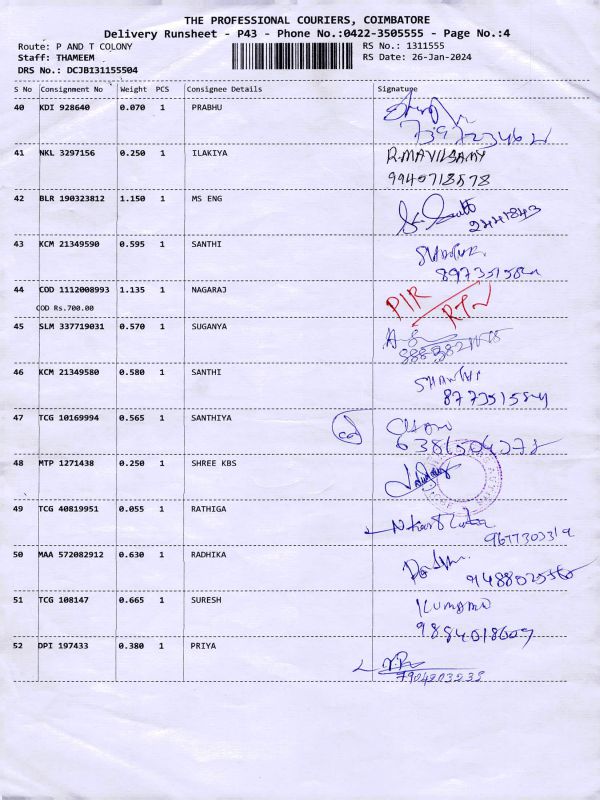 THE PROFESSIONAL COURIERS, COIMBATORE
Delivery Runsheet - P43 - Phone No.:0422-3505555 - Page No.:4
Route: P AND T COLONY
RS No.: 1311555
Staff: THAMEEM
RS Date: 26-Jan-2024
DRS No.: DCJB131155504
S No Consignment No Weight PCS Consignee Details Signature
40 KDI 928640 0.070 1 PRABHU
41 NKL 3297156 0.250 1 ILAKIYA R.MAVILSAMY
9940718578
42 BLR 190323812 1.150 1 MS ENG
2441843
43 KCM 21349590 0.595 1 SANTHI
44 COD 1112008993 1.135 1 NAGARAJ PIR
COD Rs.700.00 RTN
45 SLM 337719031 0.570 1 SUGANYA
46 KCM 21349580 0.580 1 SANTHI SHANTHI
47 TCG 10169994 0.565 1 SANTHIYA
48 MTP 1271438 0.250 1 SHREE KBS
49 TCG 40819951 0.055 1 RATHIGA
9677303319
50 MAA 572082912 0.630 1 RADHIKA
51 TCG 108147 0.665 1 SURESH
9884018609
52 DPI 197433 0.380 1 PRIYA
7904803233